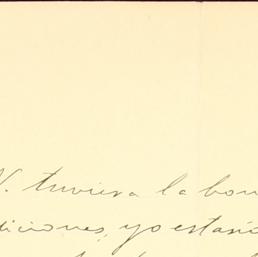 V. tuviera la bon
diciones, yo estari